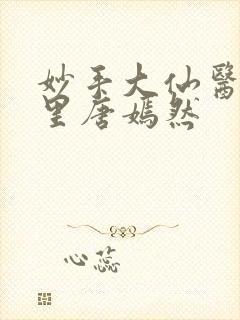 妙手大仙醫
里唐嫣然
心蕊